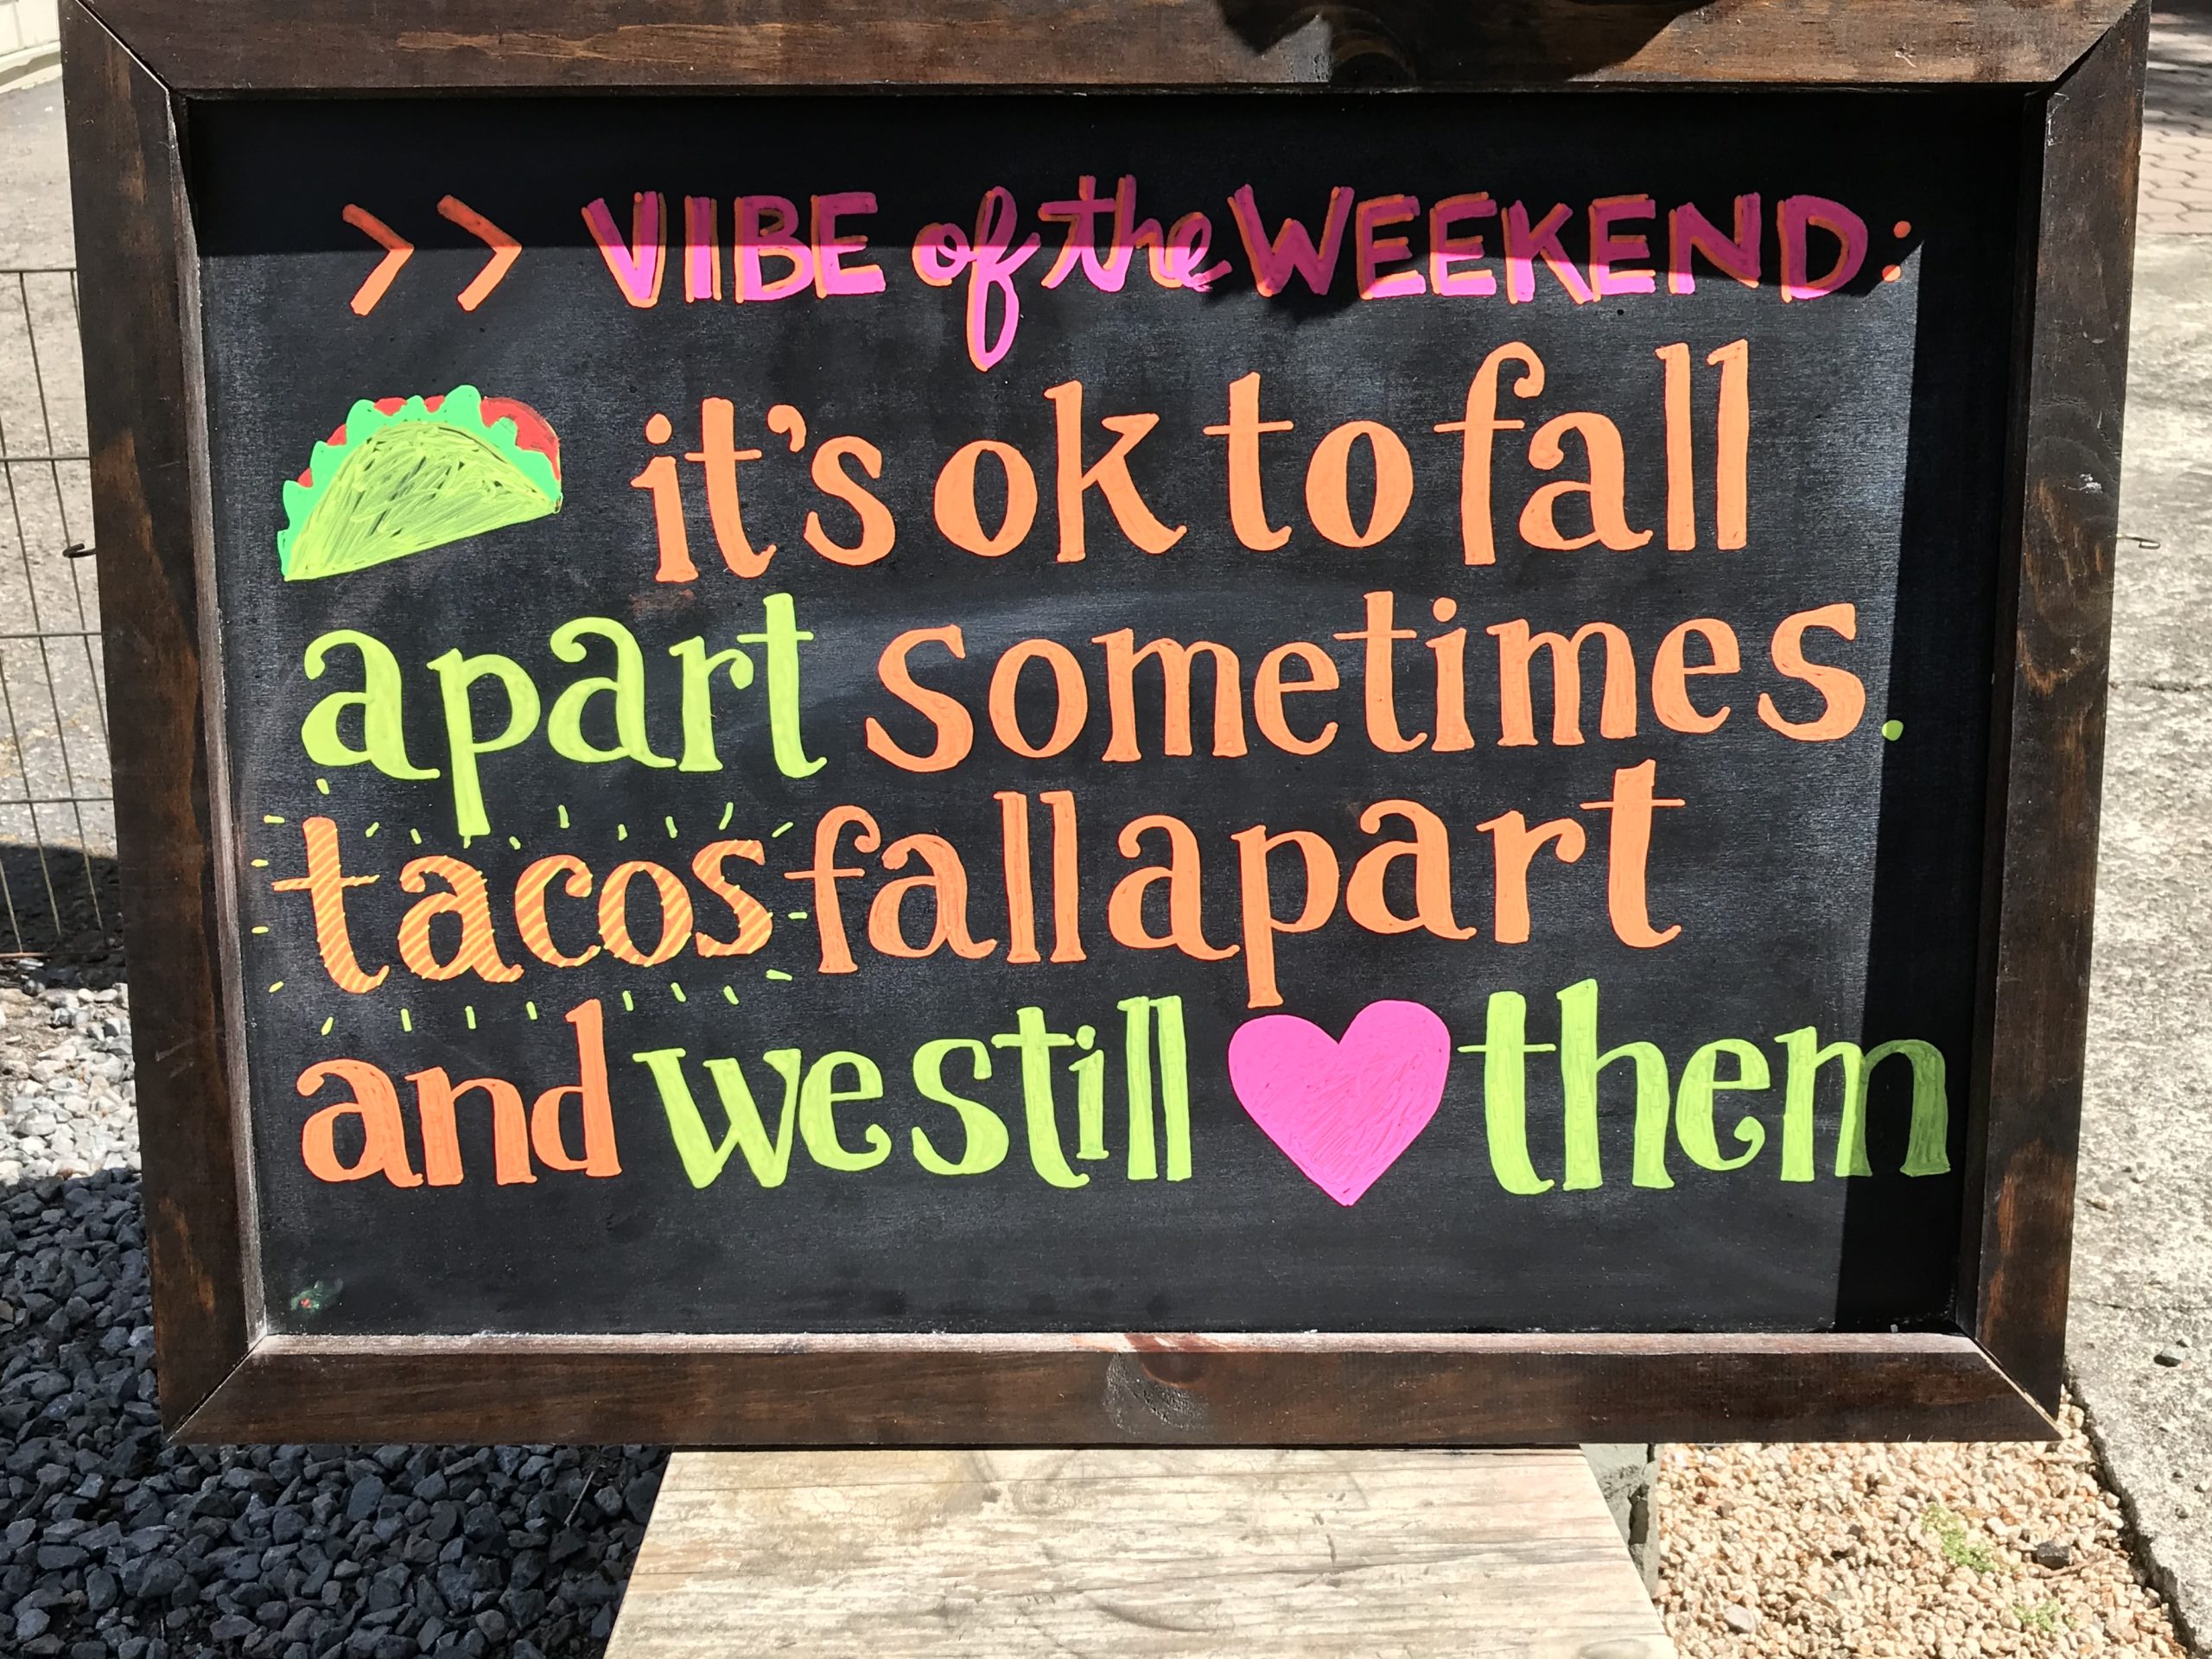 >> VIBE of the WEEKEND:
it's ok to fall
apart sometimes.
tacos fall apart
and we still ♥ them